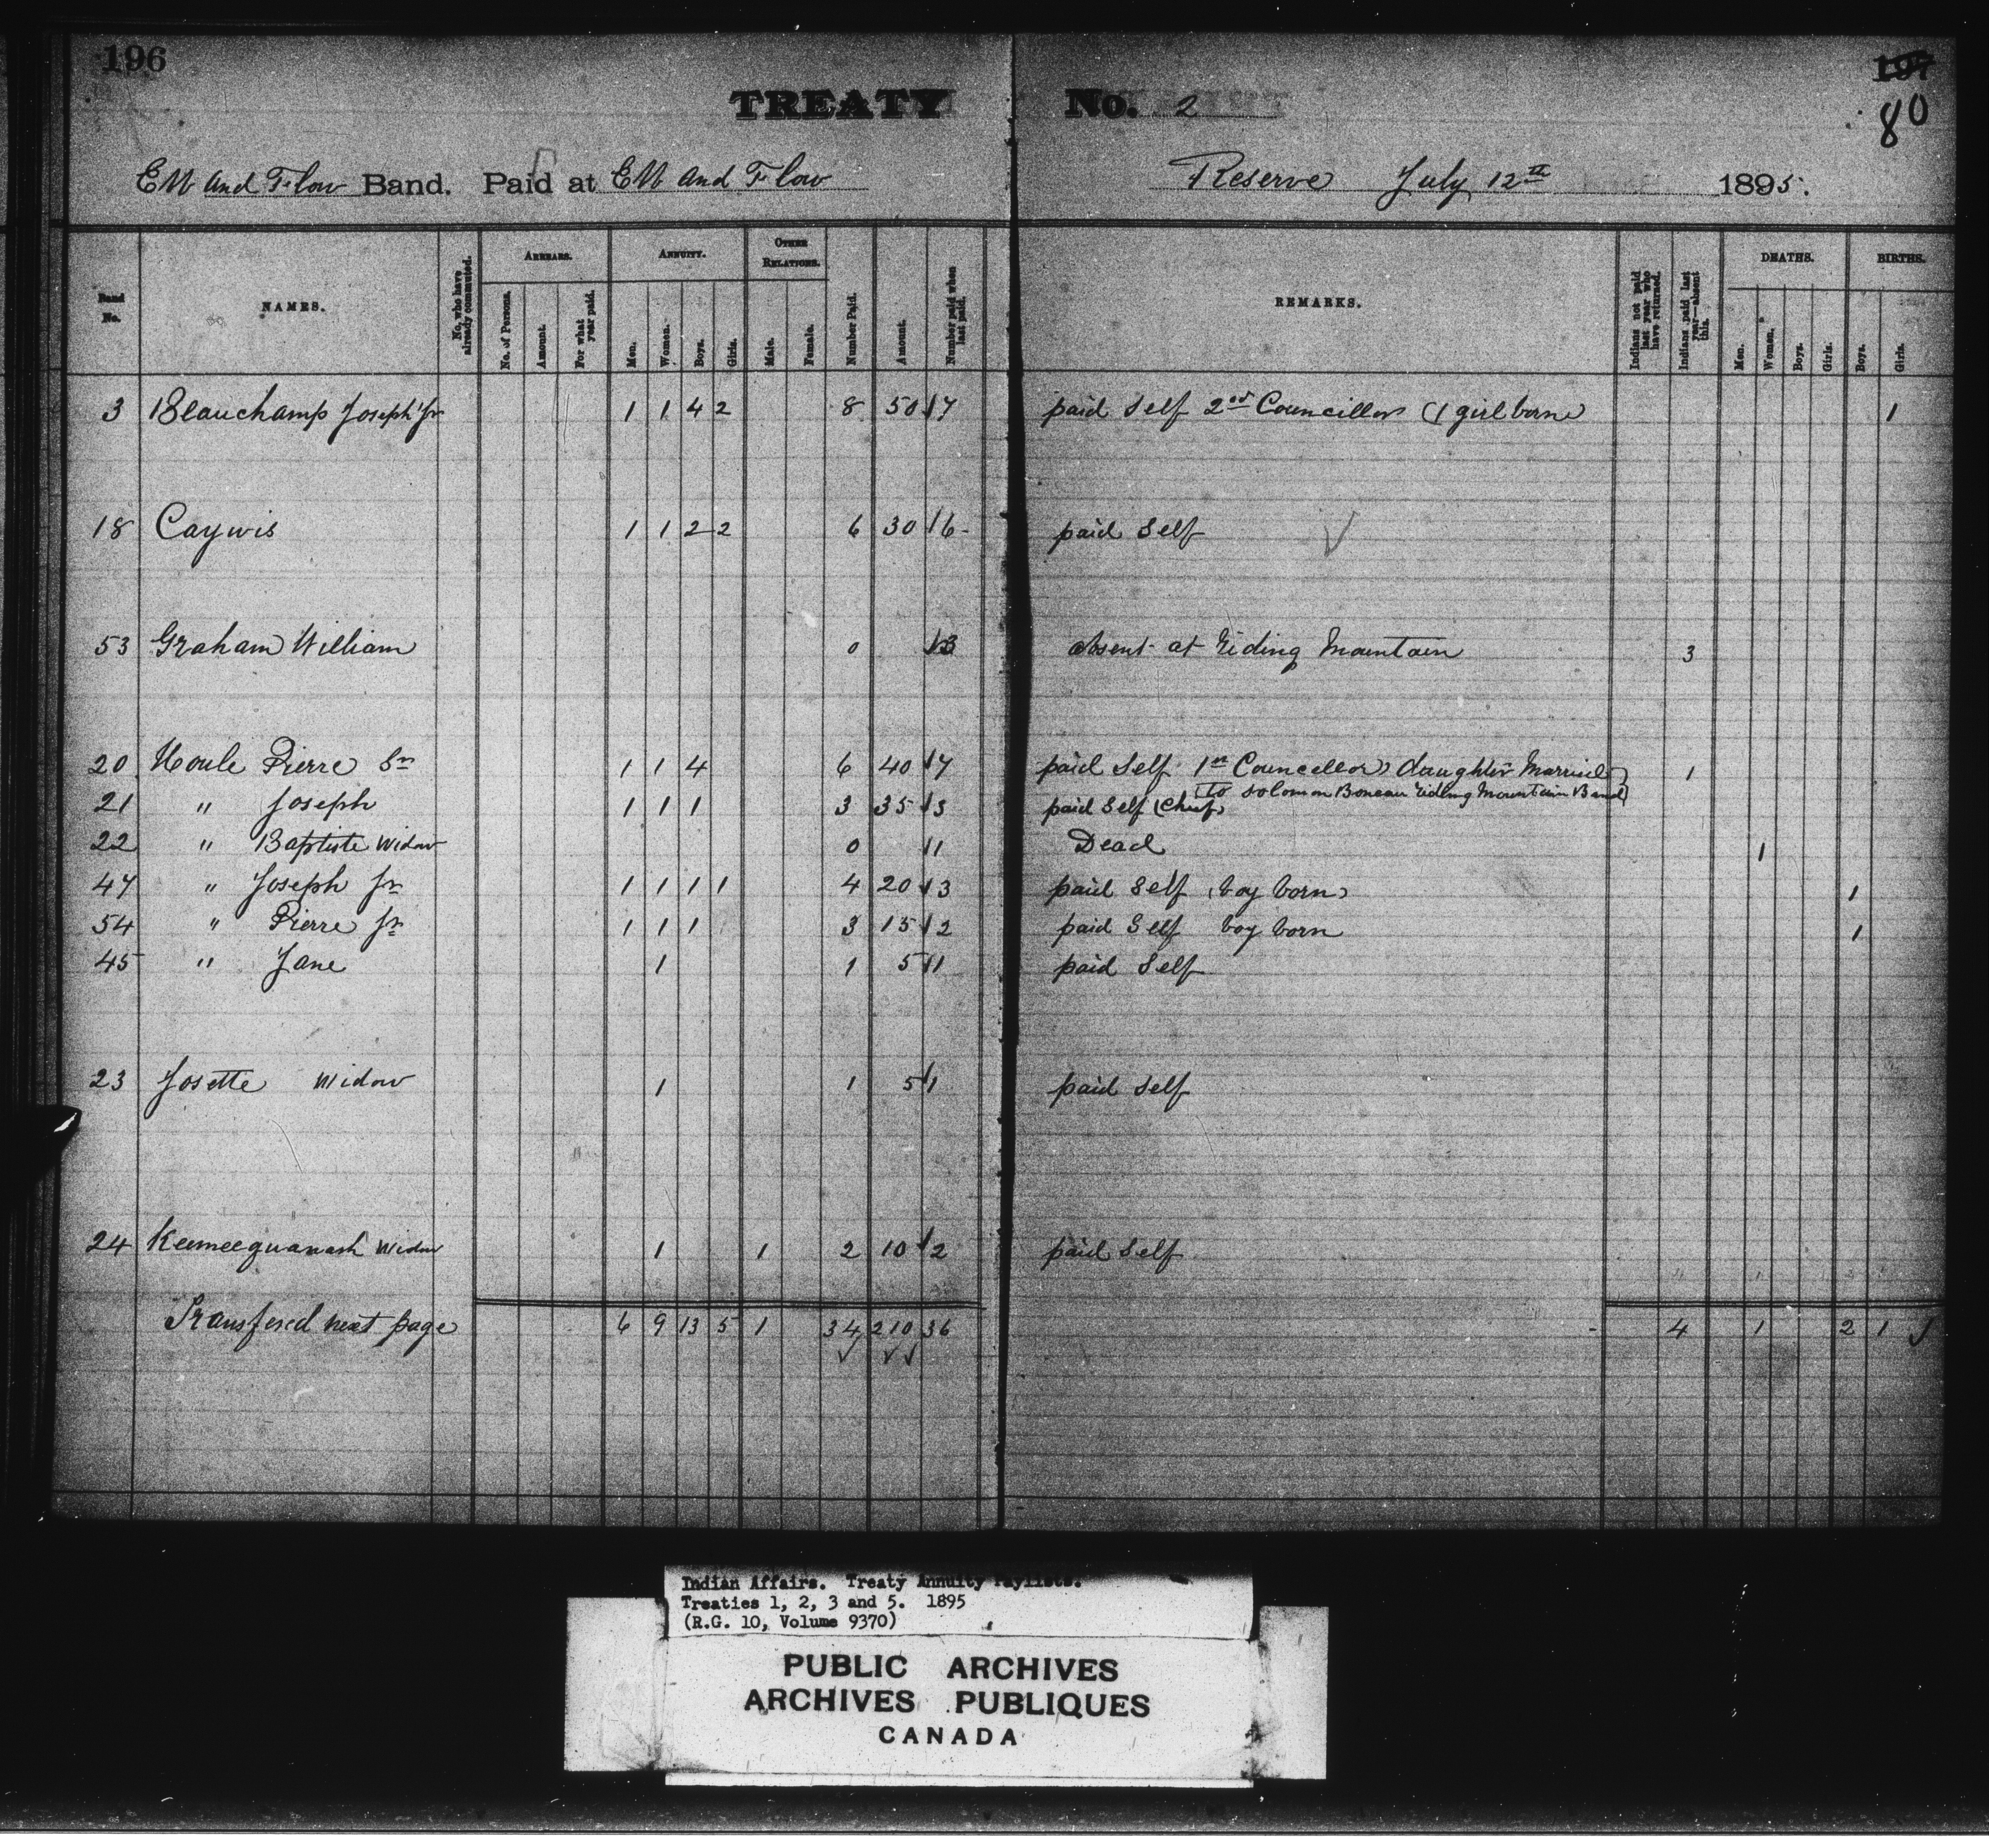 196
197
80
TREATY No. 2
Ebb and Flow Band. Paid at Ebb and Flow Reserve July 12th 1895.
Band No.
NAMES.
No. who have already commuted.
ARREARS.
No. of Persons.
Amount.
For what year paid.
ANNUITY.
Men.
Women.
Boys.
Girls.
OTHER RELATIONS.
Male.
Female.
Number Paid.
Amount.
Number paid when last paid.
REMARKS.
Indians not paid last year who have returned.
Indians paid last year—absent this.
DEATHS.
Men.
Women.
Boys.
Girls.
BIRTHS.
Boys.
Girls.
3 Beauchamp Joseph Jr 1 1 4 2 8 50 7 paid Self 2nd Councillor (1 girl born) 1
18 Caywis 1 1 2 2 6 30 6 paid Self
53 Graham William 0 3 absent at Riding Mountain 3
20 Houle Pierre Sr 1 1 4 6 40 7 paid Self 1st Councellor, daughter Married 1
(To Solomon Boneau Riding Mountain Band)
21 " Joseph 1 1 1 3 35 3 paid Self (Chief)
22 " Baptiste Widow 0 1 Dead 1
47 " Joseph Jr 1 1 1 1 4 20 3 paid Self (boy born) 1
54 " Pierre Jr 1 1 1 3 15 2 paid Self boy born 1
45 " Jane 1 1 5 1 paid Self
23 Josette Widow 1 1 5 1 paid Self
24 Keemeequanash Widow 1 1 2 10 2 paid Self
Transfered next page 6 9 13 5 1 34 210 36 4 1 2 1
Indian Affairs. Treaty Annuity Paylists.
Treaties 1, 2, 3 and 5. 1895
(R.G. 10, Volume 9370)
PUBLIC ARCHIVES
ARCHIVES PUBLIQUES
CANADA